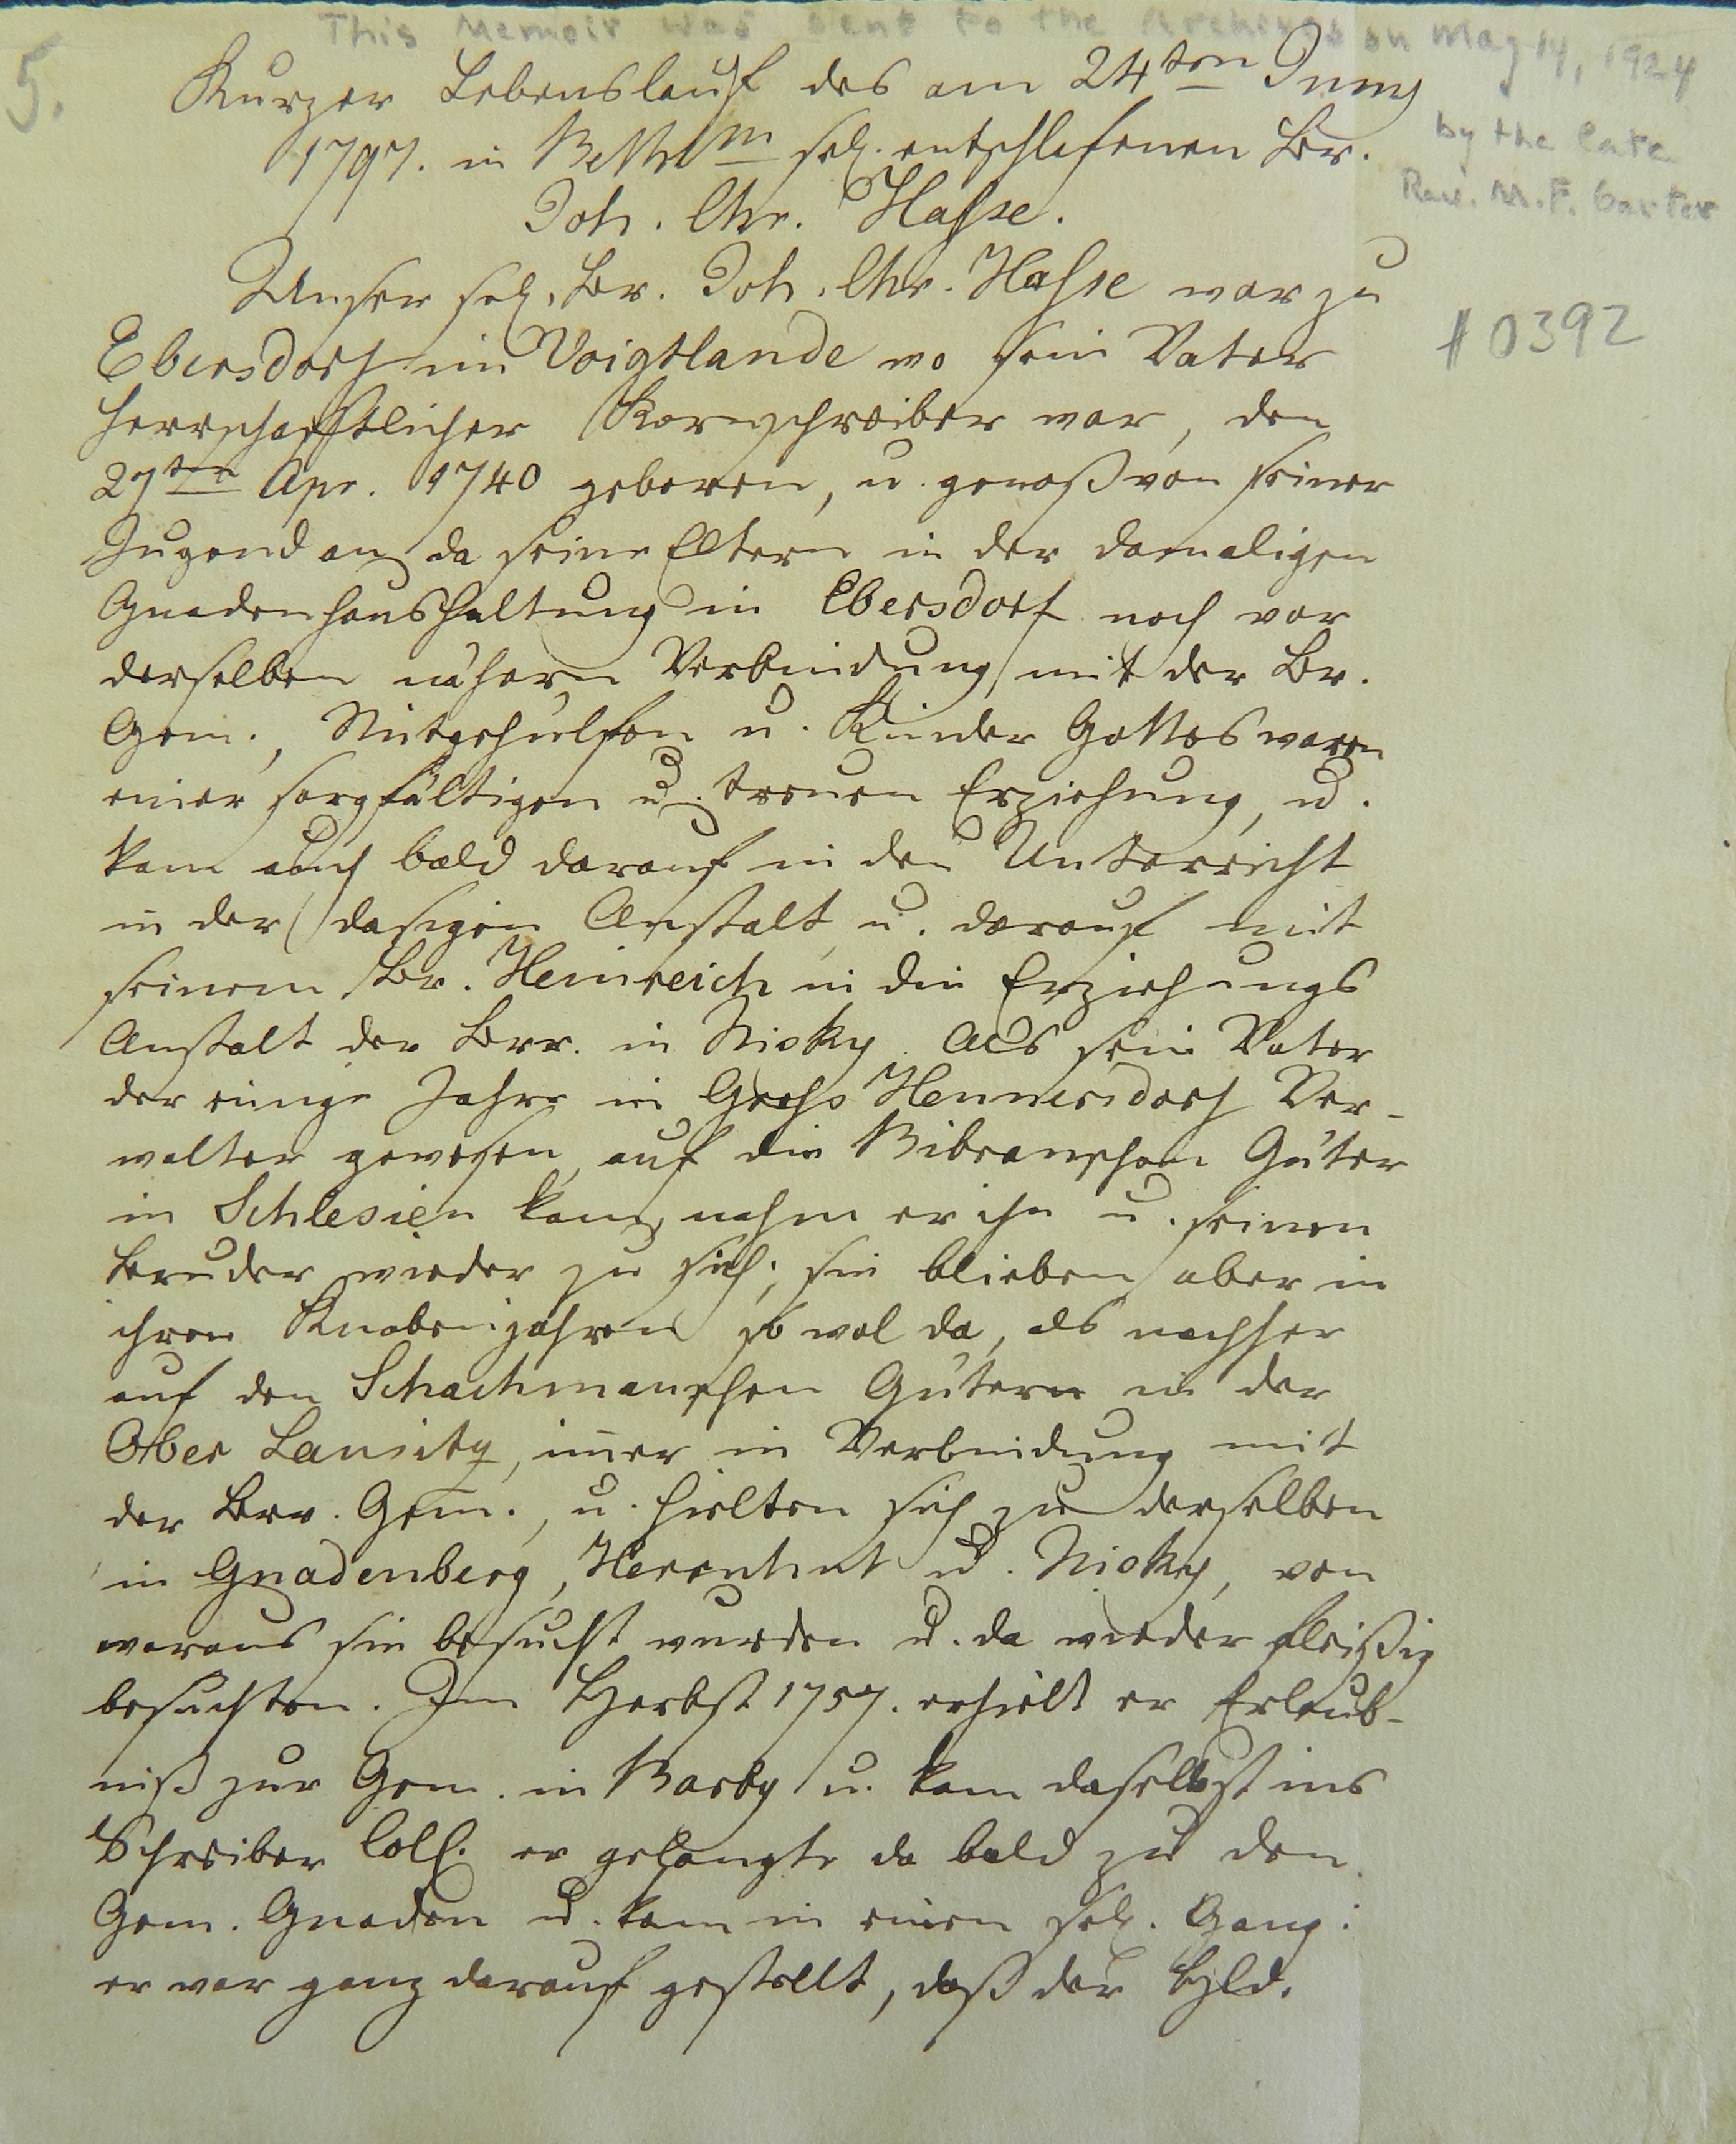 This Memoir was sent to the Archives on May 14, 1924
by the late
Rev. M. F.
5.
# 0392
Kurzer Lebenslauf des am 24ten Juny
1797. in Bethlm sel. entschlafenen Br.
Joh. Chr. Hasse.
Unser sel. Br. Joh. Chr. Hasse war zu
Ebersdorf im Voigtlande wo sein Vater
herrschafftlicher Kornschreiber war, den
27ten Apr. 1740 geboren, u. genoß von seiner
Jugend an da seine Eltern in der damaligen
Gnadenhaushaltung in Ebersdorf noch vor
derselben nähern Verbindung mit der Br.
Gem., Mitgehülfen u. Kinder Gottes waren
einer sorgfältigen u. treuen Erziehung, u.
kam auch bald darauf in den Unterricht
in der dasigen Anstalt u. darauf mit
seinem Br. Heinreich in die Erziehungs
Anstalt der Brr. in Nisky. Als sein Vater
der einige Jahre in Gross Hennersdorf Ver-
walter gewesen, auf die Bibranschen Güter
in Schlesien kam, nahm er ihn u. seinen
Bruder wieder zu sich; sie blieben aber in
ihren Knabenjahren so wol da, als nachher
auf den Schachmanschen Gütern in der
Ober Lausitz, im̄er in Verbindung mit
der Brr. Gem., u. hielten sich zu derselben
in Gnadenberg, Herrnhut u. Nisky, von
woraus sie besucht wurden u. da wieder fleißig
besuchten. Im Herbst 1757. erhielt er Erlaub-
niß zur Gem. in Barby u. kam daselbst ins
Schreiber Coll. er gelangte da bald zu den
Gem. Gnaden u. kam in einen sel. Gang:
er war ganz darauf gestellt, daß der Hld.